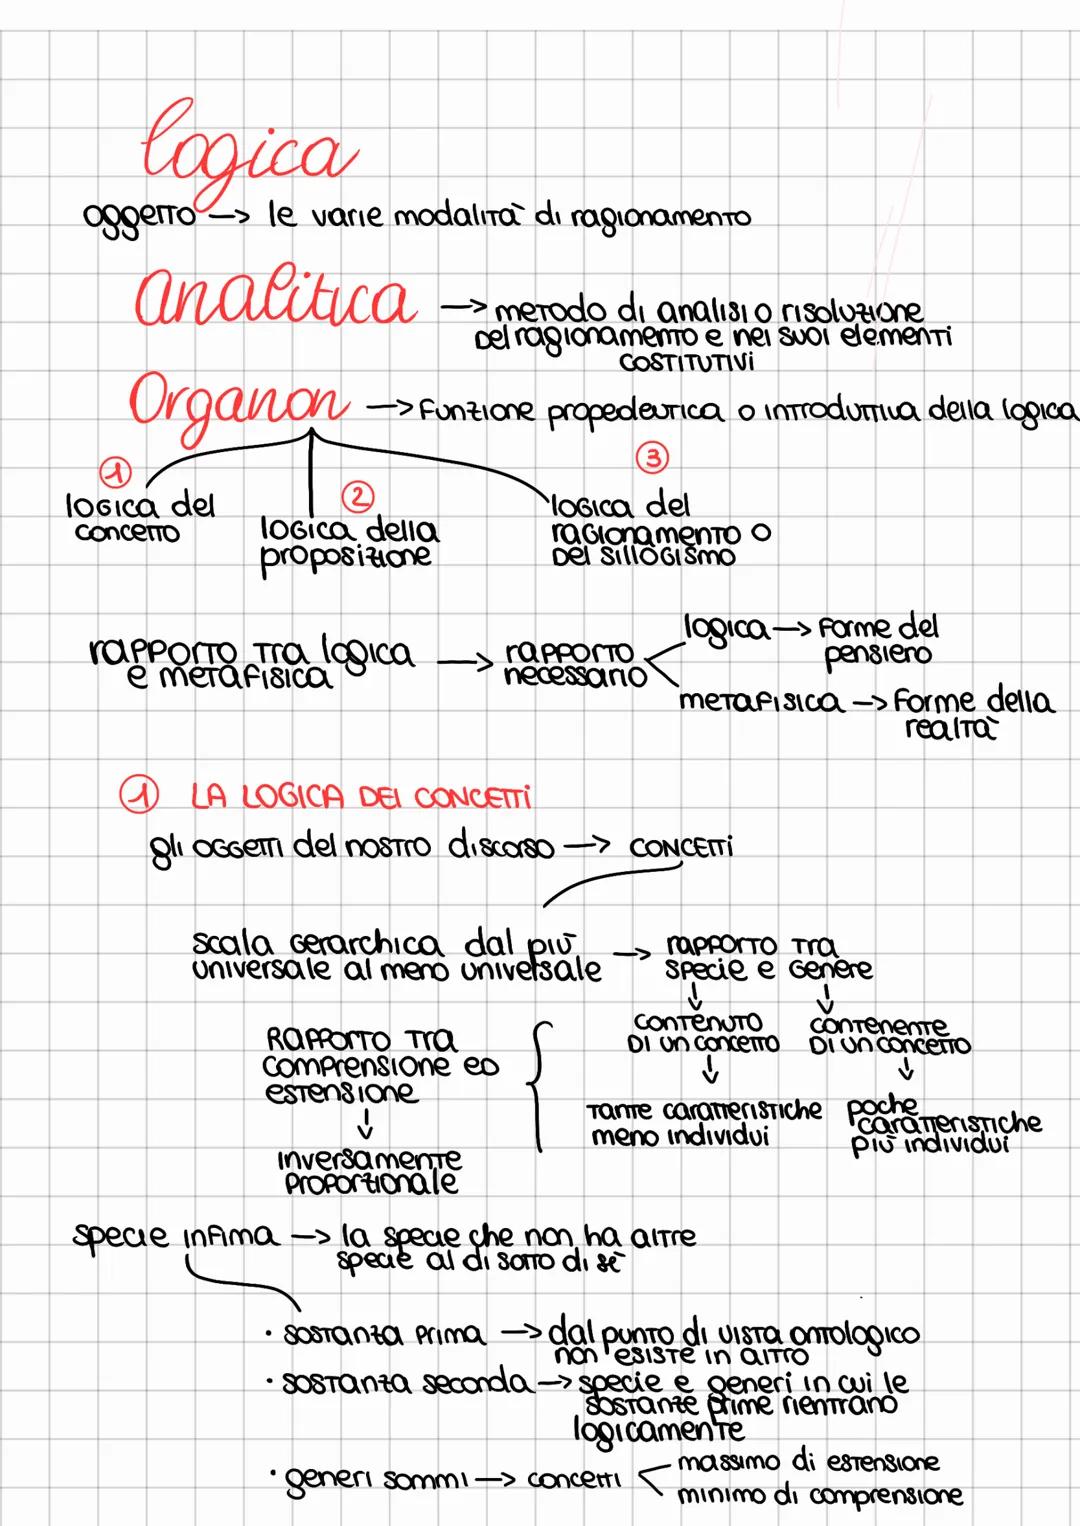 logica
oggetto → le varie modalità di ragionamento
Analitica → metodo di analisi o risoluzione
del ragionamento e nei suoi elementi
costitutivi
Organon → funzione propedeutica o introduttiva della logica
① ② ③
logica del
concetto
logica della
proposizione
logica del
ragionamento o
del sillogismo
rapporto tra logica
e metafisica → rapporto
necessario
logica → forme del
pensiero
metafisica → forme della
realtà
① LA LOGICA DEI CONCETTI
gli oggetti del nostro discorso → CONCETTI
scala gerarchica dal più
universale al meno universale → rapporto tra
specie e genere
↓ ↓
contenuto
di un concetto
contenente
di un concetto
↓ ↓
tante caratteristiche
meno individui
poche
caratteristiche
più individui
Rapporto tra
comprensione ed
estensione
↓
inversamente
proporzionale
specie infima → la specie che non ha altre
specie al di sotto di sè
· sostanza prima → dal punto di vista ontologico
non esiste in altro
· sostanza seconda → specie e generi in cui le
sostanze prime rientrano
logicamente
· generi sommi → concetti
massimo di estensione
minimo di comprensione